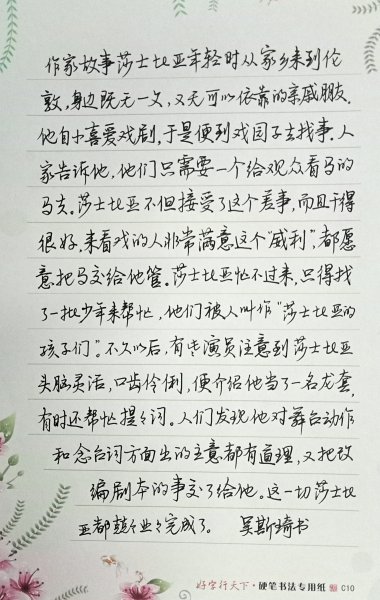 作家故事莎士比亚年轻时从家乡来到伦
敦,身边既无一文,又无可以依靠的亲戚朋友。
他自小喜爱戏剧,于是便到戏园子去找事。人
家告诉他,他们只需要一个给观众看马的
马夫。莎士比亚不但接受了这个差事,而且干得
很好,来看戏的人非常满意这个“威利”,都愿
意把马交给他管。莎士比亚忙不过来,只得找
了一批少年来帮忙,他们被人叫作“莎士比亚的
孩子们”。不久以后,有些演员注意到莎士比亚
头脑灵活,口齿伶俐,便介绍他当了一名龙套,
有时还帮忙提提词。人们发现他对舞台动作
和念台词方面出的主意都有道理,又把改
编剧本的事交了给他。这一切莎士比
亚都兢々业々完成了。 吴斯琦书
好字行天下·硬笔书法专用纸 C10